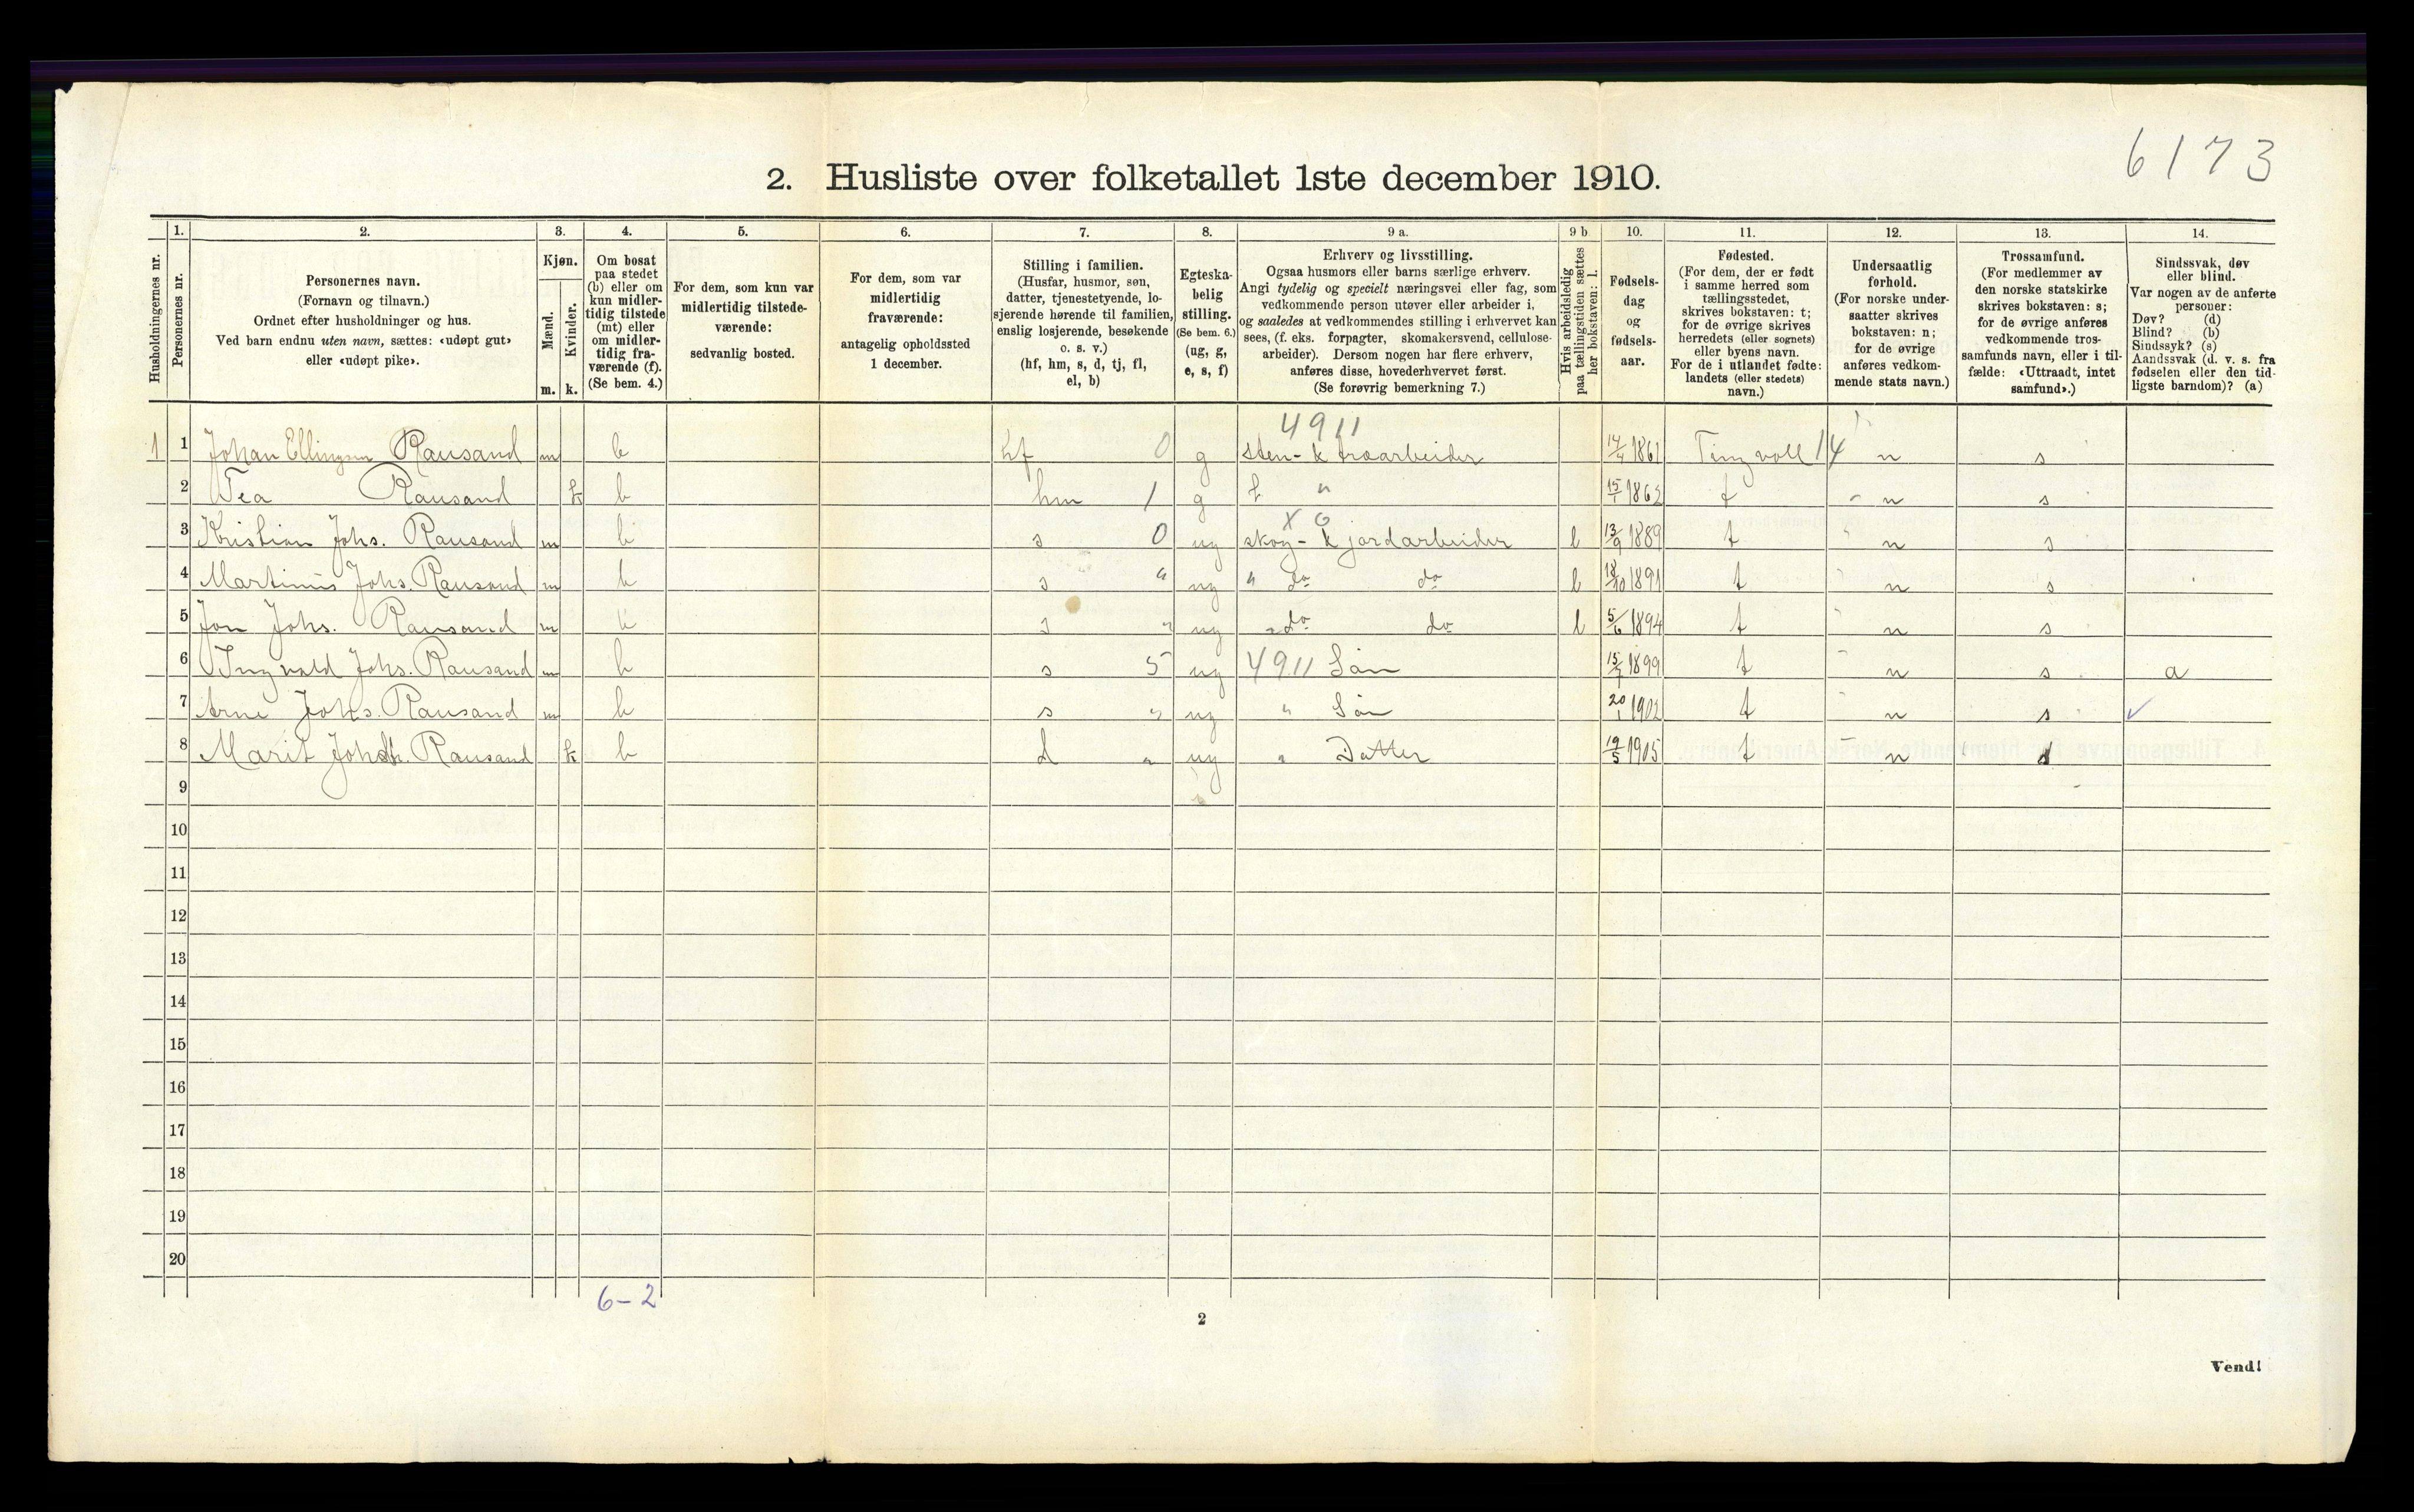 6173
2. Husliste over folketallet 1ste december 1910.
Husholdningernes nr.
1.
Personernes nr.
2.
Personernes navn.
(Fornavn og tilnavn.)
Ordnet efter husholdninger og hus.
Ved barn endnu uten navn, sættes: «udøpt gut»
eller «udøpt pike».
3.
Kjøn.
Mænd.
m.
Kvinder.
k.
4.
Om bosat
paa stedet
(b) eller om
kun midler-
tidig tilstede
(mt) eller
om midler-
tidig fra-
værende (f).
(Se bem. 4.)
5.
For dem, som kun var
midlertidig tilstede-
værende:
sedvanlig bosted.
6.
For dem, som var
midlertidig
fraværende:
antagelig opholdssted
1 december.
7.
Stilling i familien.
(Husfar, husmor, søn,
datter, tjenestetyende, lo-
sjerende hørende til familien,
enslig losjerende, besøkende
o. s. v.)
(hf, hm, s, d, tj, fl,
el, b)
8.
Egteska-
belig
stilling.
(Se bem. 6.)
(ug, g,
e, s, f)
9 a.
Erhverv og livsstilling.
Ogsaa husmors eller barns særlige erhverv.
Angi tydelig og specielt næringsvei eller fag, som
vedkommende person utøver eller arbeider i,
og saaledes at vedkommendes stilling i erhvervet kan
sees, (f. eks. forpagter, skomakersvend, cellulose-
arbeider). Dersom nogen har flere erhverv,
anføres disse, hovederhvervet først.
(Se forøvrig bemerkning 7.)
9 b
Hvis arbeidsledig
paa tællingstiden sættes
her bokstaven: l.
10.
Fødsels-
dag
og
fødsels-
aar.
11.
Fødested.
(For dem, der er født
i samme herred som
tællingsstedet,
skrives bokstaven: t;
for de øvrige skrives
herredets (eller sognets)
eller byens navn.
For de i utlandet fødte:
landets (eller stedets)
navn.)
12.
Undersaatlig
forhold.
(For norske under-
saatter skrives
bokstaven: n;
for de øvrige
anføres vedkom-
mende stats navn.)
13.
Trossamfund.
(For medlemmer av
den norske statskirke
skrives bokstaven: s;
for de øvrige anføres
vedkommende tros-
samfunds navn, eller i til-
fælde: «Uttraadt, intet
samfund».)
14.
Sindssvak, døv
eller blind.
Var nogen av de anførte
personer:
Døv? (d)
Blind? (b)
Sindssyk? (s)
Aandssvak (d. v. s. fra
fødselen eller den tid-
ligste barndom)? (a)
4911
1 1 Johan Ellingsen Rausand m b hf 0 g sten- & træarbeider 14/4 1861 Tingvoll 14 n s
2 Tea Rausand k b hm 1 g " 15/1 1862 t n s
x o
3 Kristian Johs. Rausand m b s 0 ug skog- & jordarbeider l 13/9 1889 t n s
4 Martinus Johs. Rausand m b s " ug " do do l 18/10 1891 t n s
5 Jon Johs. Rausand m b s " ug " do do l 5/6 1894 t n s
6 Ingvald Johs. Rausand m b s 5 ug 4911 Søn 15/7 1899 t n s a
7 Arne Johs. Rausand m b s " ug " Søn 20/1 1902 t n s
8 Marit Johsdt. Rausand k b d " ug " Datter 19/5 1905 t n s
9
10
11
12
13
14
15
16
17
18
19
20
6-2
2
Vend!